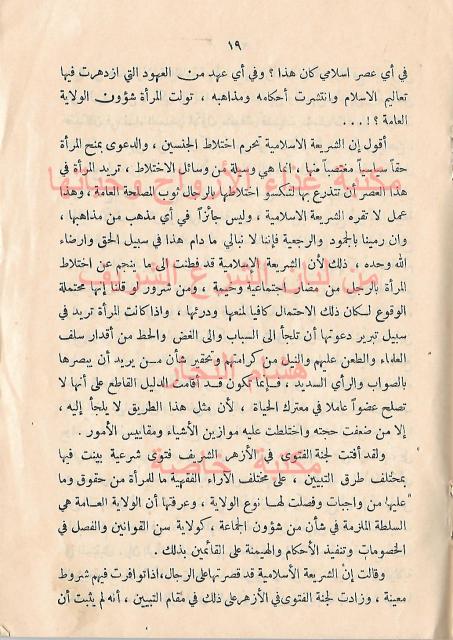 ١٩
في أي عصر اسلامي كان هذا ؟ وفي أي عهد من العهود التي ازدهرت فيها
تعاليم الاسلام وانتشرت أحكامه ومذاهبه ، تولت المرأة شؤون الولاية
العامة ؟ ! ...
أقول إن الشريعة الاسلامية تحرم اختلاط الجنسين ، والدعوى بمنح المرأة
حقاً سياسياً مغتصباً منها ، إنما هي وسيلة من وسائل الاختلاط ، تريد المرأة في
هذا العصر أن تتذرع بها لتكسو اختلاطها بالرجال ثوب المصلحة العامة ، وهذا
عمل لا تقره الشريعة الاسلامية ، وليس جائزاً في أي مذهب من مذاهبها ،
وان رمينا بالجمود والرجعية فإننا لا نبالي ما دام هذا في سبيل الحق وارضاء
الله وحده ، ذلك لأن الشريعة الاسلامية قد فطنت الى ما ينجم عن اختلاط
المرأة بالرجل من مضار اجتماعية وخيمة ، ومن شرور لو قلنا إنها محتملة
الوقوع لكان ذلك الاحتمال كافيا لمنعها ودرئها ، واذا كانت المرأة تريد في
سبيل تبرير دعوتها أن تلجأ الى السباب والى الغض والحط من أقدار سلف
العلماء والطعن عليهم والنيل من كرامتهم وتحقير شأن من يريد أن يبصرها
بالصواب والرأي السديد ، فإنما تكون قد أقامت الدليل القاطع على أنها لا
تصلح عضواً عاملا في معترك الحياة ، لأن مثل هذا الطريق لا يلجأ إليه ،
إلا من ضعفت حجته واختلطت عليه موازين الأشياء ومقاييس الأمور .
ولقد أفتت لجنة الفتوى في الأزهر الشريف فتوى شرعية بينت فيها
بمختلف طرق التبيين ، على مختلف الآراء الفقهية ما للمرأة من حقوق وما
عليها من واجبات وفصلت لها نوع الولاية ، وعرفتها أن الولاية العامة هي
السلطة الملزمة في شأن من شؤون الجماعة ، كولاية سن القوانين والفصل في
الخصومات وتنفيذ الأحكام والهيمنة على القائمين بذلك .
وقالت إن الشريعة الاسلامية قد قصرتها على الرجال ، اذا توافرت فيهم شروط
معينة ، وزادت لجنة الفتوى في الأزهر على ذلك في مقام التبيين ، أنه لم يثبت أن
مكتبة غذاء الأرواح ريحانها
من لبان الشرع الشريف
هشام النجار
مكتبة خاصة